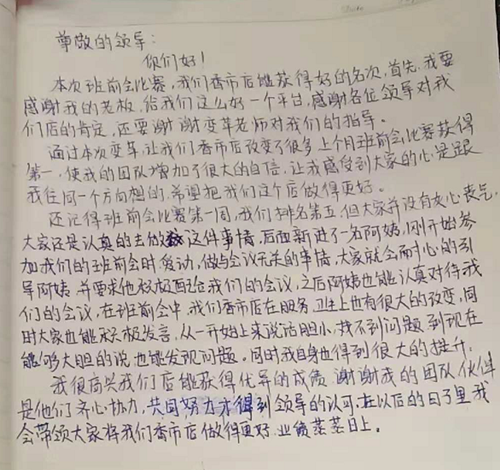 尊敬的领导：
你们好！
本次班前会比赛，我们香市店能获得好的名次，首先，我要
感谢我的老板，给我们这么好一个平台，感谢各位领导对我
们店的肯定，还要谢谢变革老师对我们的指导。
通过本次变革，让我们香市店改变了很多上个月班前会比赛获得
第一，使我的团队增加了很大的自信，让我感受到大家的心是跟
我往同一个方向想的，希望把我们这个店做得更好。
还记得班前会比赛第一周，我们排名第五，但大家并没有灰心丧气，
大家还是认真的去做这件事情，后面新进了一名阿姨，刚开始参
加我们的班前会时发动，做与会议无关的事情，大家就会耐心的引
导阿姨，并要求他积极配合我们的会议，之后阿姨也能认真对待我
们的会议，在班前会中，我们香市店在服务，卫生上也有很大的改变，同
时大家也能积极发言，从一开始上来说话胆小，找不到问题到现在
能够大胆的说也能发现问题。同时我自身也得到很大的提升。
我很高兴我们店能获得优异的成绩，谢谢我的团队伙伴
是他们齐心协力，共同努力才得到领导的认可，在以后的日子里我
会带领大家将我们香市店做得更好，业绩蒸蒸日上。